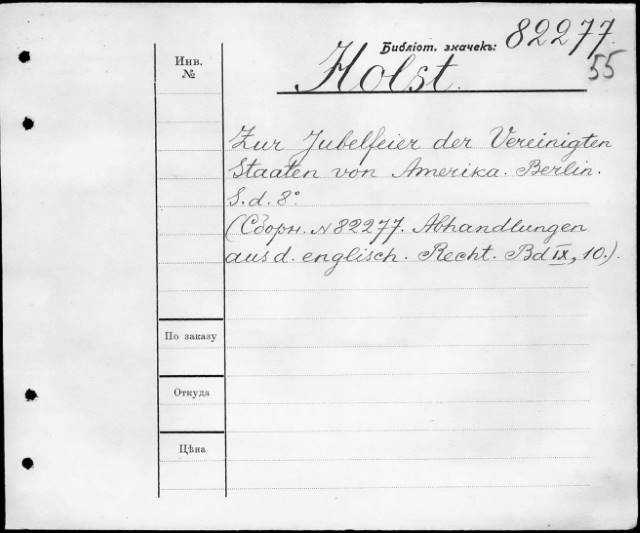 Библіот. значекъ: 82277
55
Holst.
Инв.
№
Zur Jubelfeier der Vereinigten
Staaten von Amerika. Berlin.
S. d. 8°
(Сборн. № 82277. Abhandlungen
aus d. englisch. Recht. Bd IX, 10.).
По заказу
Откуда
Цѣна